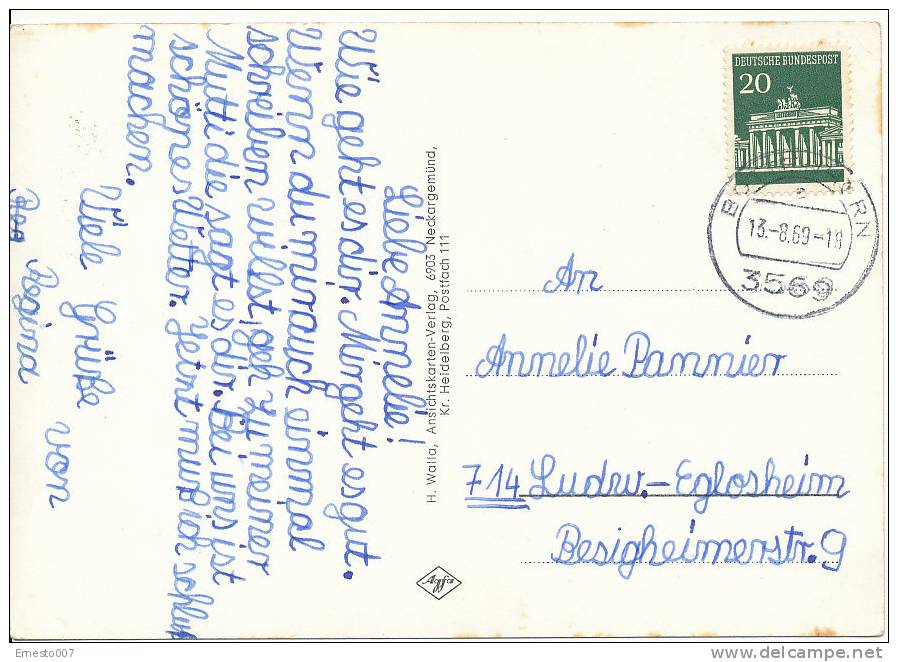 Liebe Annelie!
Wie geht es dir. Mir geht es gut.
Wenn du mir auch einmal
schreiben willst, geh zu meiner
Mutti die sagt es dir. Bei uns ist
schönes Wetter. Jetzt muß ich schluß
machen.
Viele Grüße von
Regina
H. Walla, Ansichtskarten-Verlag, 6903 Neckargemünd,
Kr. Heidelberg, Postfach 111
Agfa
DEUTSCHE BUNDESPOST
20
13.-8.69-18
3569
An
Annelie Pannier
714 Ludw.-Eglosheim
Besigheimerstr. 9
Ernesto007
www.delcampe.net